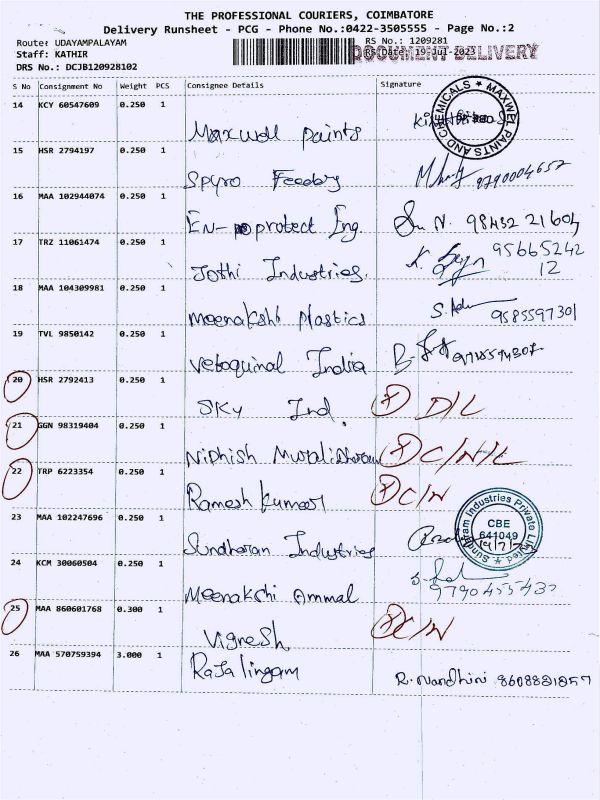 THE PROFESSIONAL COURIERS, COIMBATORE
Delivery Runsheet - PCG - Phone No.:0422-3505555 - Page No.:2
Route: UDAYAMPALAYAM RS No.: 1209281
Staff: KATHIR RS Date: 19-Jul-2023
DOCUMENT DELIVERY
DRS No.: DCJB120928102
S No Consignment No Weight PCS Consignee Details Signature
14 KCY 60547609 0.250 1
Maxwell paints
MAXWEL PAINTS AND CHEMICALS
15 HSR 2794197 0.250 1
Spyro Feeds 9790004657
16 MAA 102944074 0.250 1
En-protect Eng. N. 98432 21604
17 TRZ 11061474 0.250 1
Jothi Industries. K. 95665242
12
18 MAA 104309981 0.250 1
Meenakshi Plastics S. 9585597301
19 TVL 9850142 0.250 1
Vetoquinal India
20 HSR 2792413 0.250 1
Sky Ind. D/L
21 GGN 98319404 0.250 1
Niphish C/N/L
22 TRP 6223354 0.250 1
Ramesh kumar C/N
23 MAA 102247696 0.250 1
Sundharam Industries
Sundaram Industries Private Limited
CBE
641049
24 KCM 30060504 0.250 1
Meenakshi Ammal
25 MAA 860601768 0.300 1
Vignesh C/N
26 MAA 570759394 3.000 1
Rajalingam R. Nandhini 8608881857